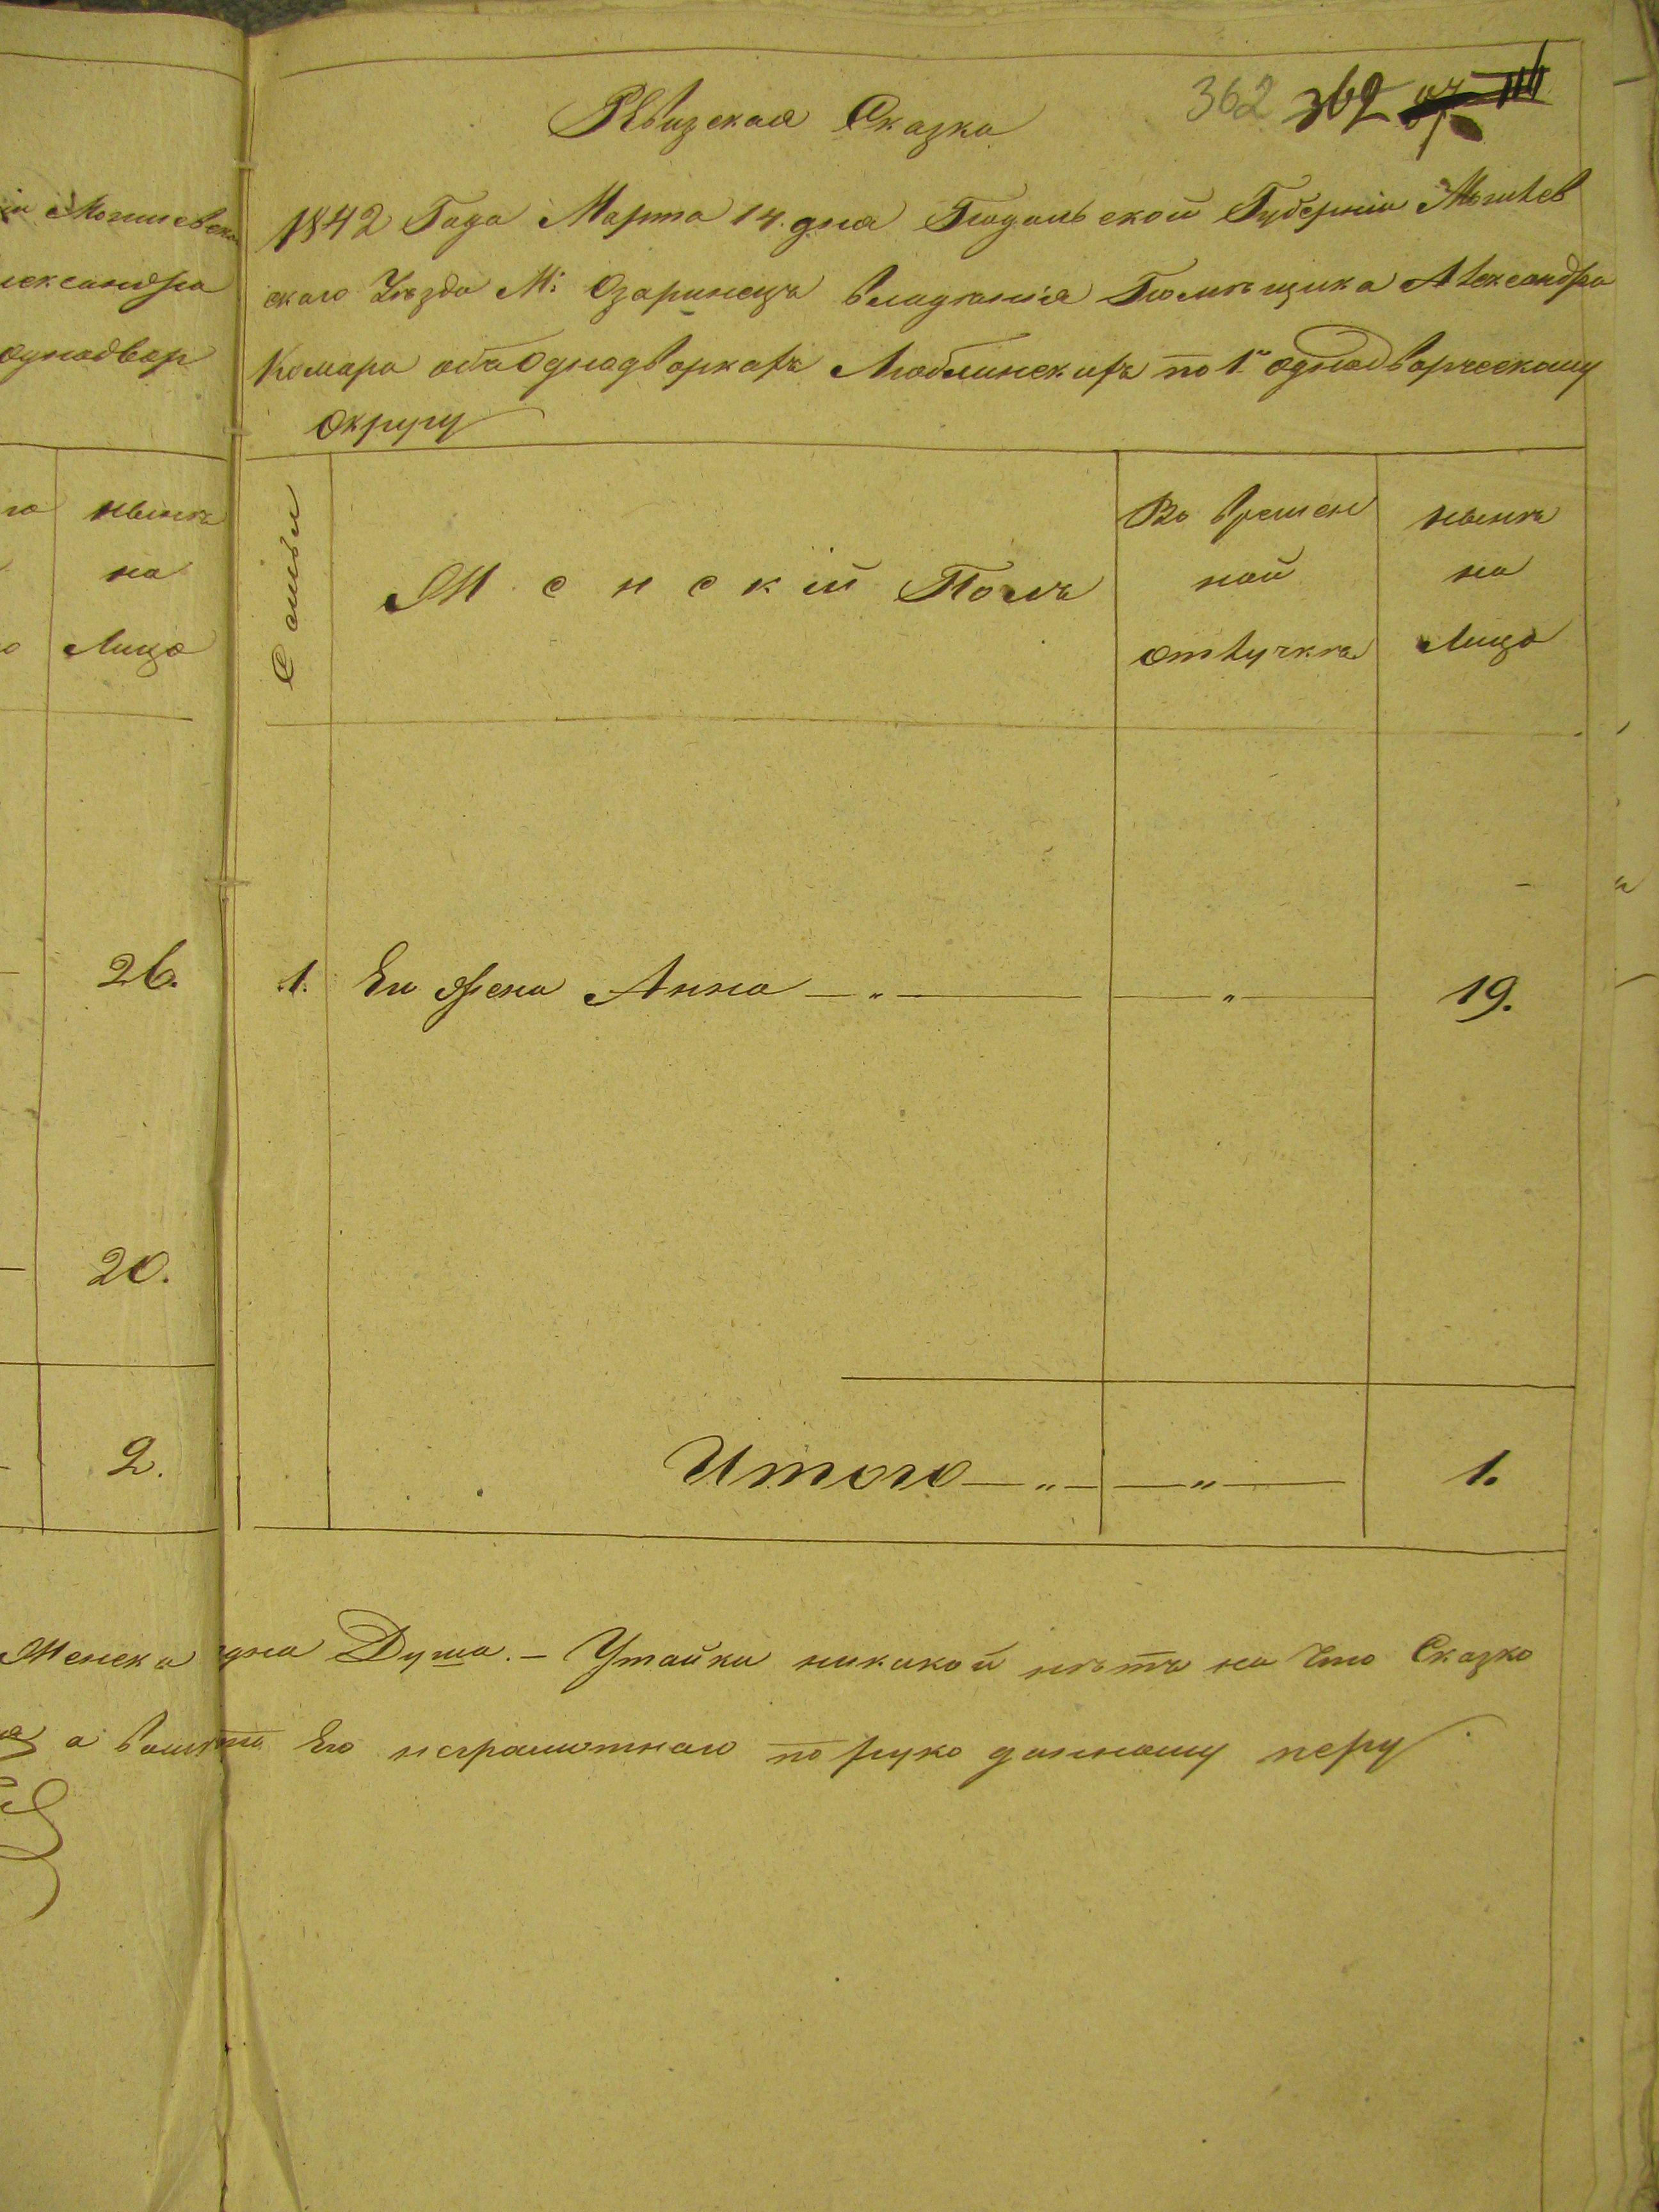 362 362
Ревизская Сказка
1842 Года Марта 14. дня Подольской Губерніи Могилев
скаго Уѣзда М: Озаринецъ владѣнія Помѣщика Александра
Комара объ Однодворкахъ Люблинскихъ по 1му однодворческому
округу
Семьи
Женскій Полъ
Во времен
ной
отлучкѣ
нынѣ
на
Лицо
1. Ея жена Анна — „ — — „ — 19.
Итого — „ — — „ — 1.
одна Душа. — Утайки никакой нѣтъ на что Сказка
Его неграмотнаго по руко данному перу
Могилевска
лександра
однодвор
нынѣ
на
Лицо
26.
20.
2.
Женска